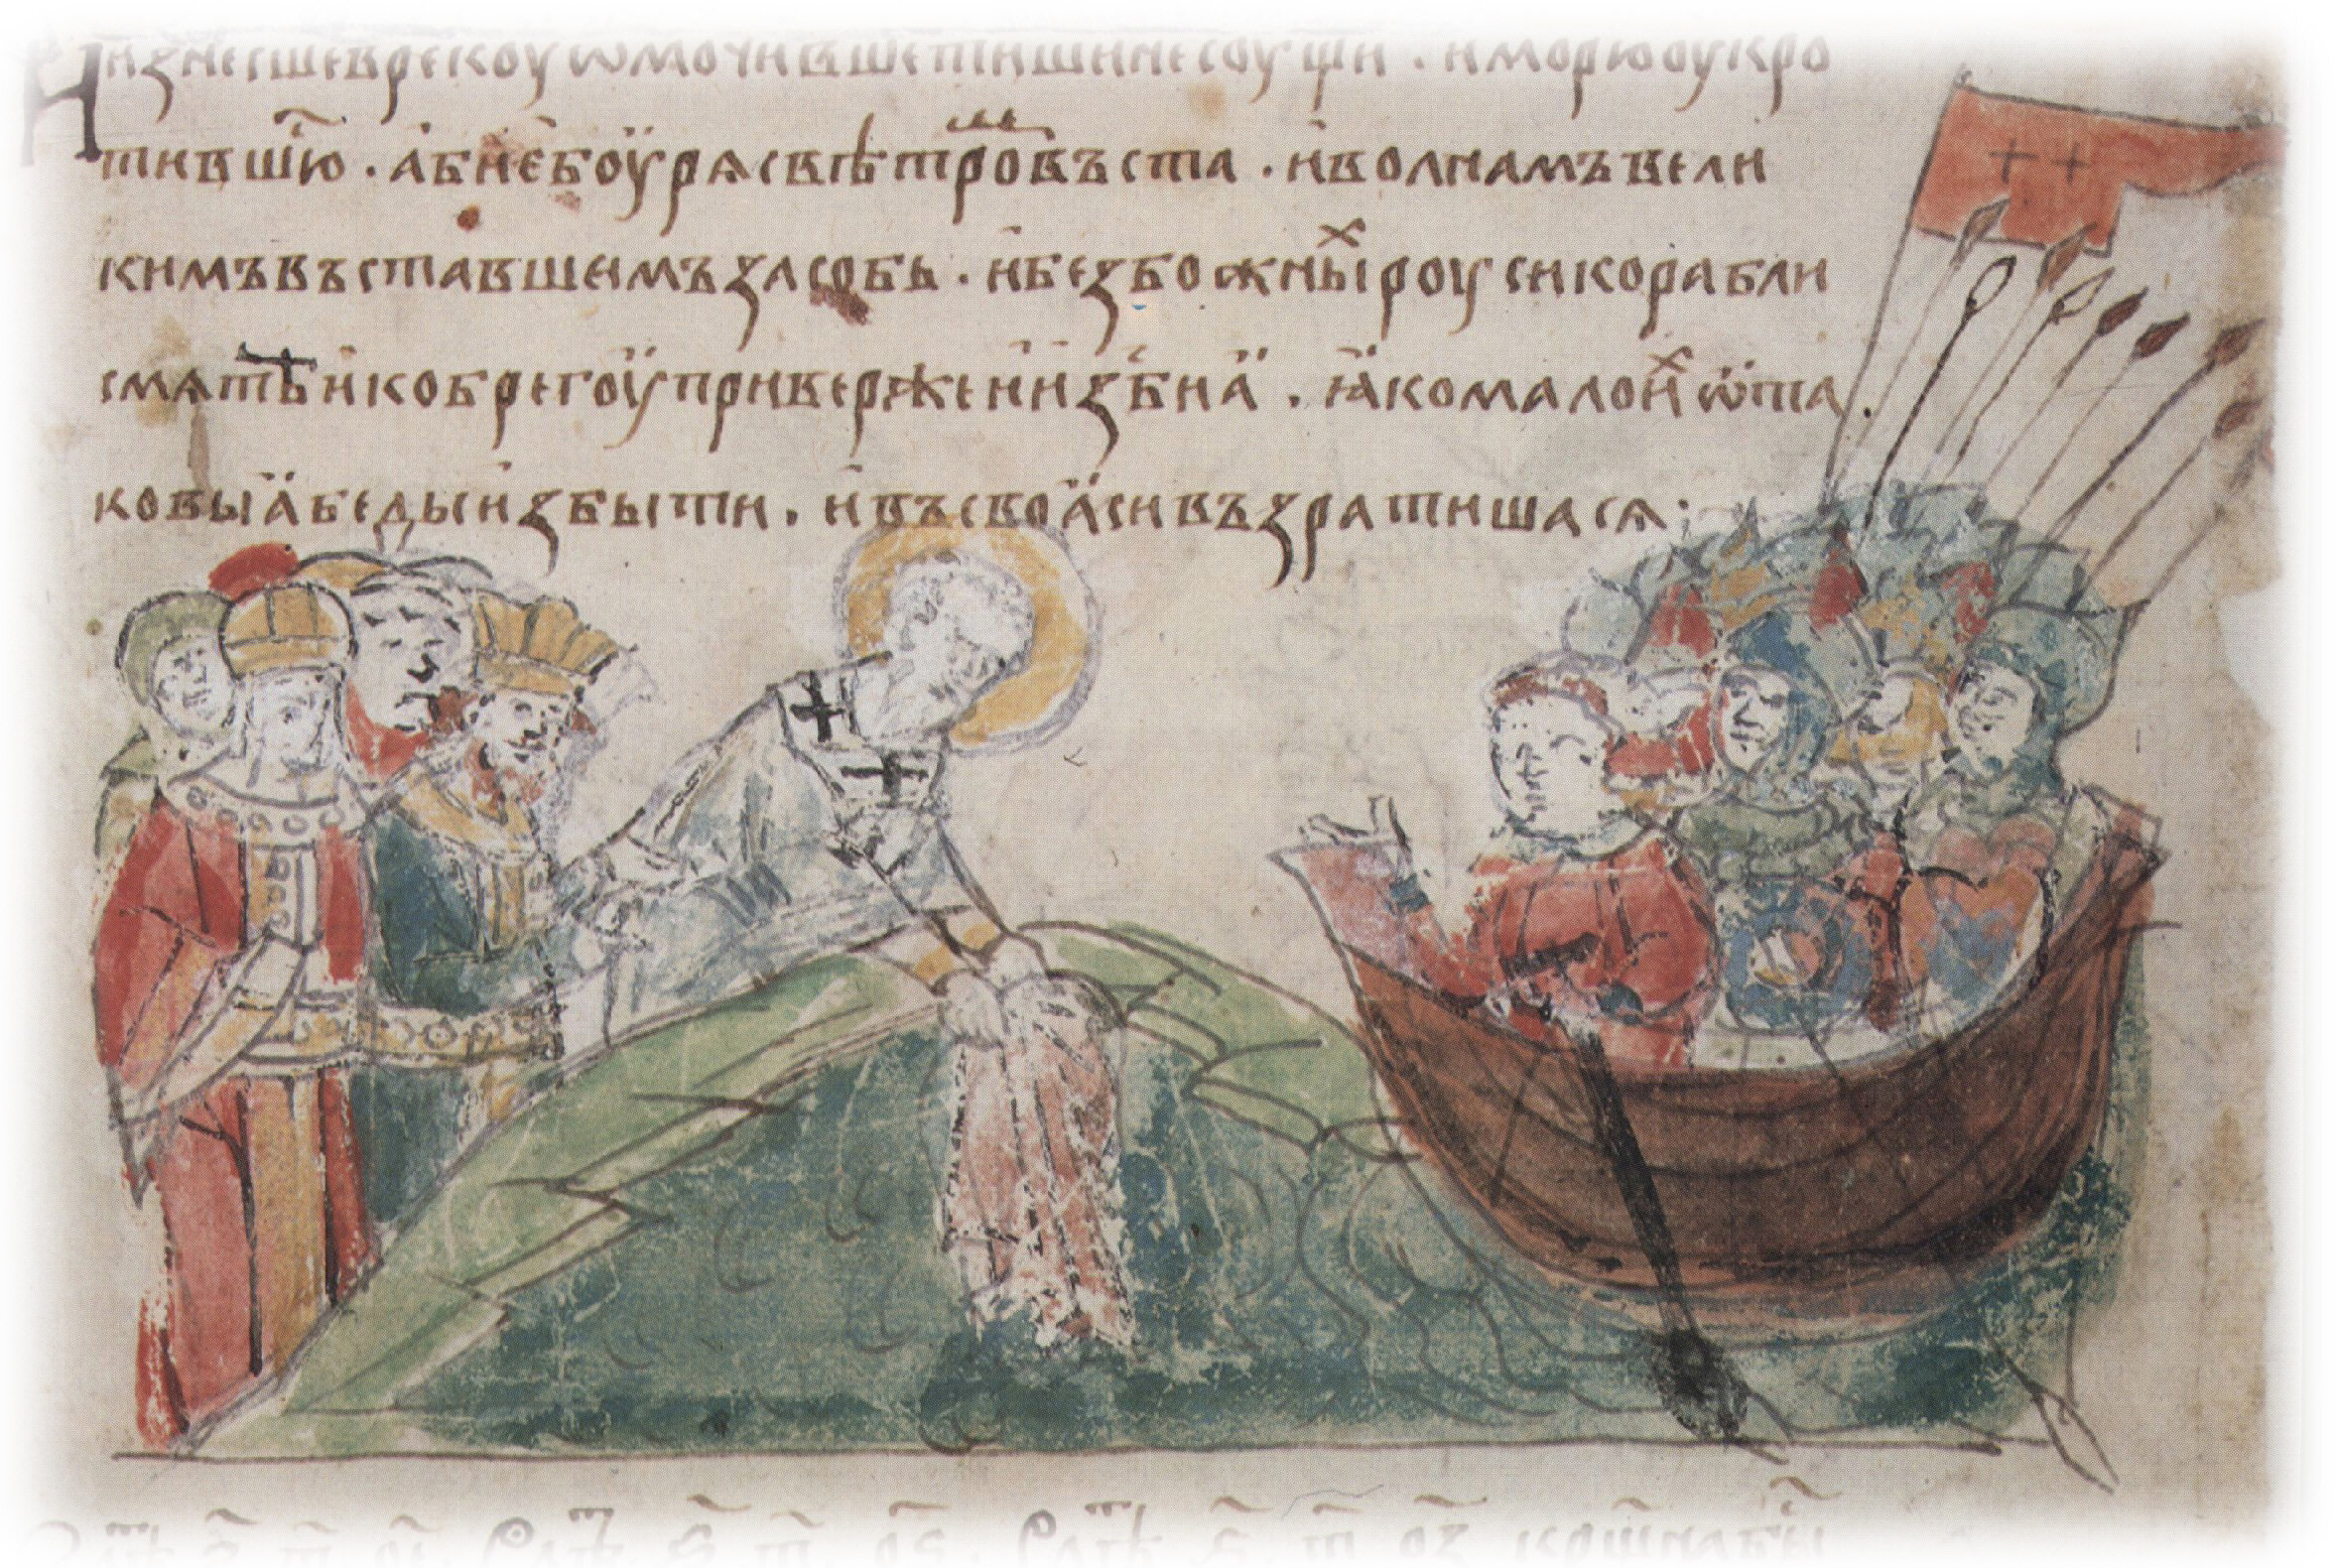 изнесше в рекоу ѡмочивше тишине соущи . и морю оукро
тившю . абие боурꙗ с вѣтромъ въста . и волнамъ вели
кимъ въставшемъ засобь . и безбожныхъ роуси корабли
смѧте и ко брегоу приверже и изби ꙗ . ꙗко мало ихъ ѿ та
ковыꙗ беды избыти . и въ своꙗси възратишасѧ .